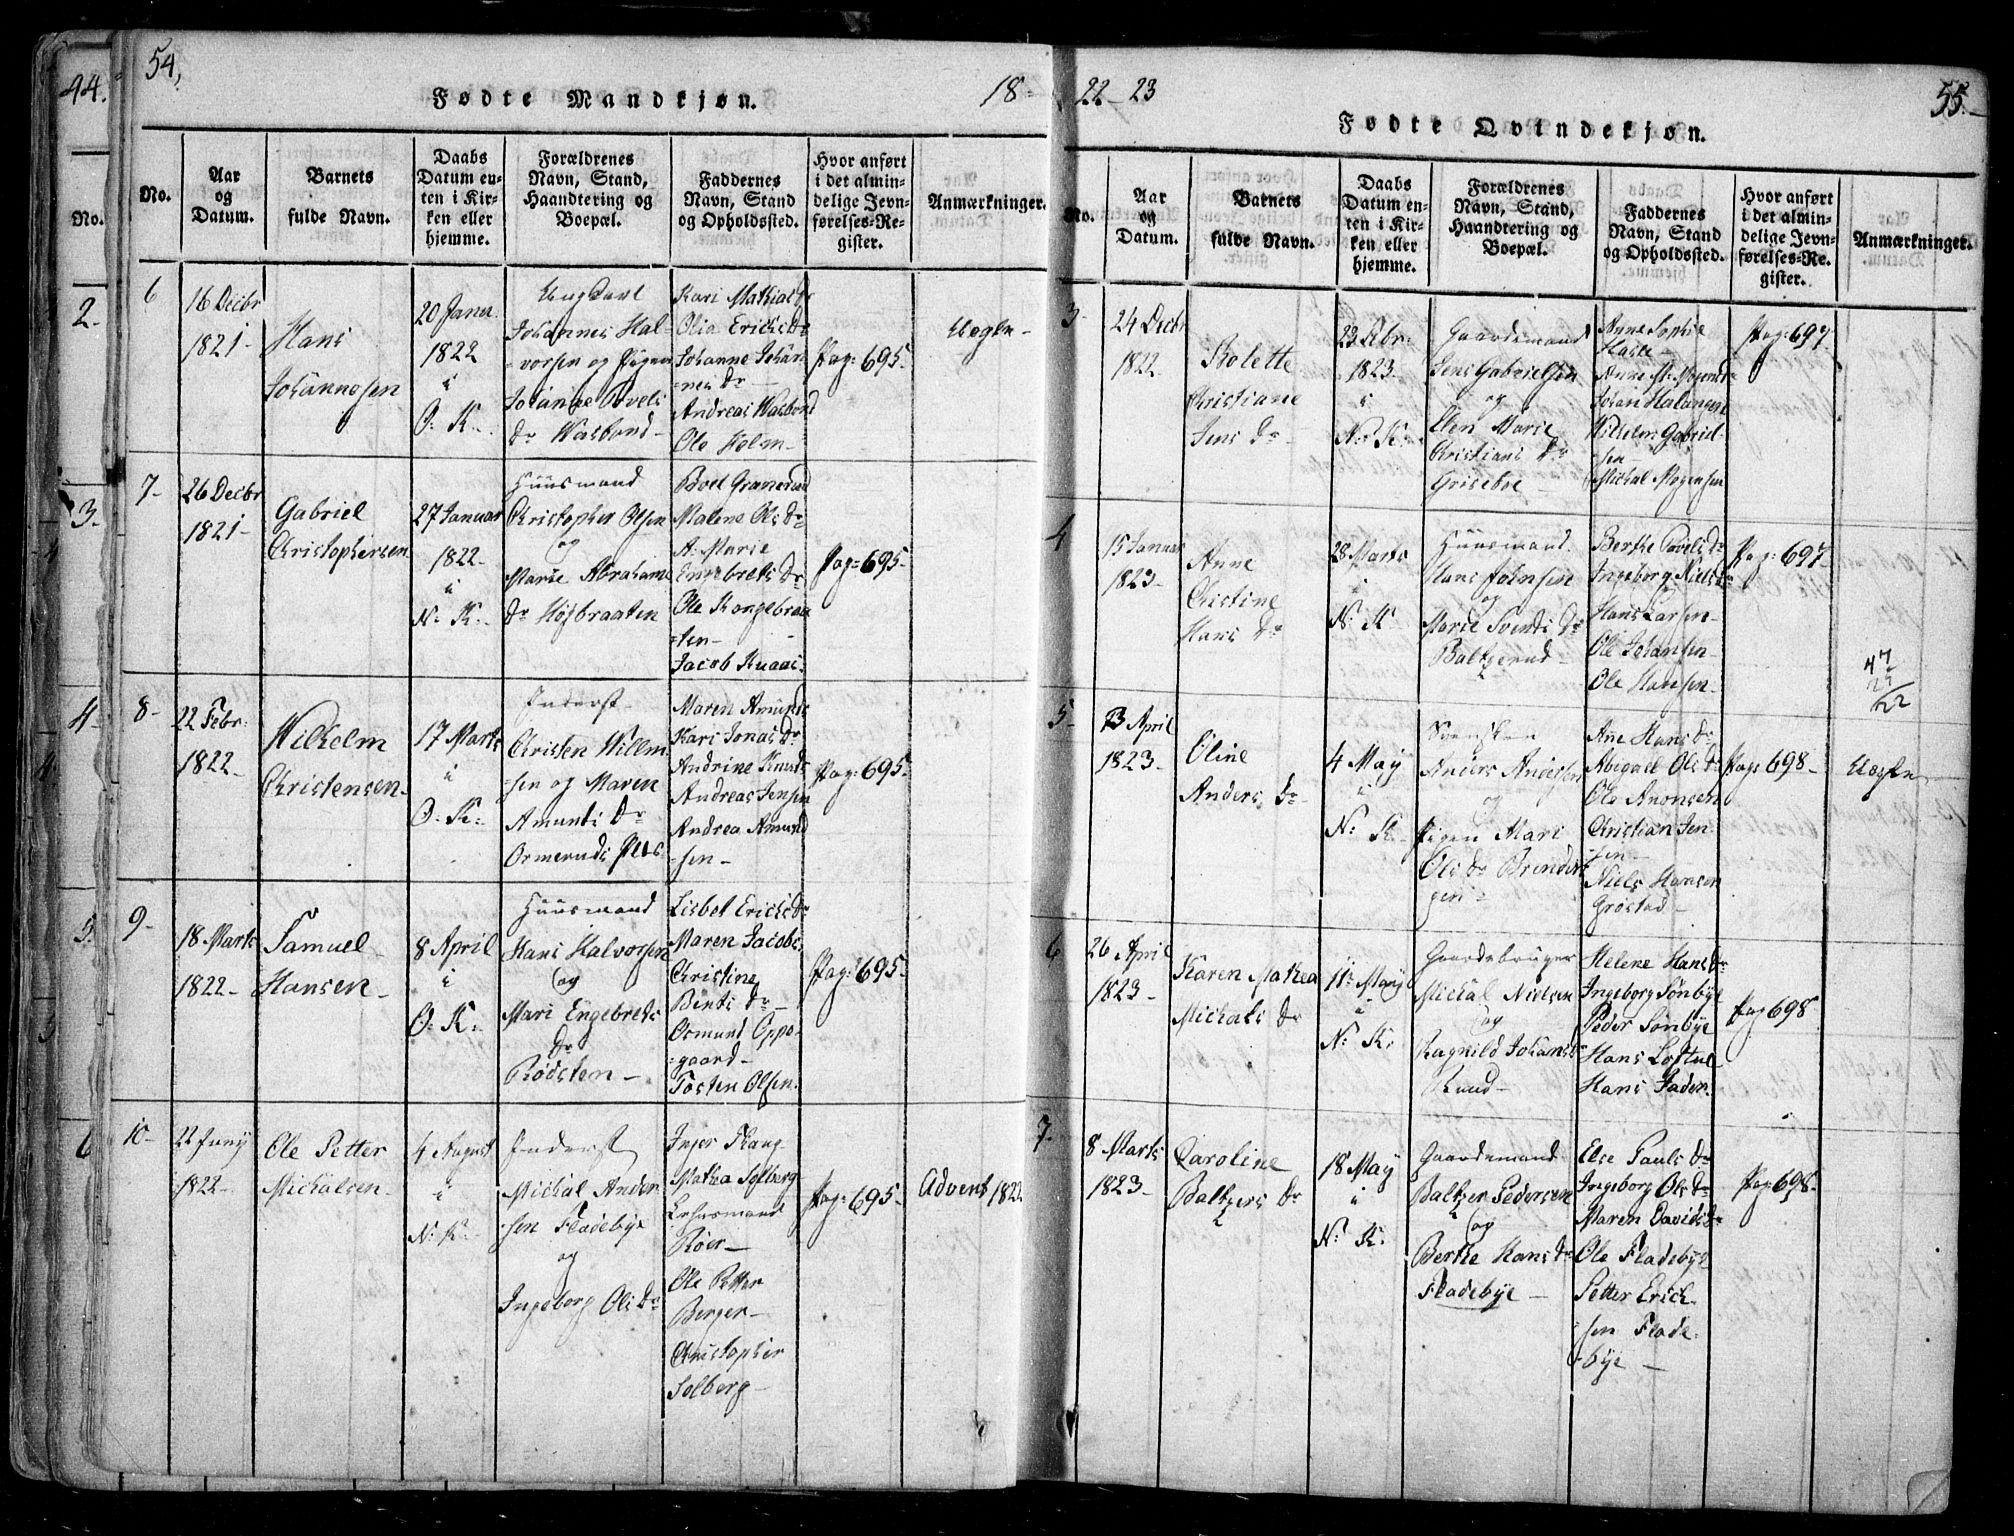 54,
Fødte Mandkjøn.
18
No.
Aar
og
Datum.
Barnets
fulde Navn.
Daabs
Datum en-
ten i Kir-
ken eller
hjemme.
Forældrenes
Navn, Stand,
Haandtering og
Boepæl.
Faddernes
Navn, Stand
og Opholdssted.
Hvor anført
i det almin-
delige Jevn-
førelses-Re-
gister.
Anmærkninger.
6
16 Decbr
1821-
Hans
Johannesen
20 Janu
1822
i
O: K:
Ungkarl
Johannes Hal-
vorsen og Pigen
Johanne Povels
Dr Wasbond-
Kari Mathias Dr
Olia Erichs Dr
Johanne Johan-
nes Dr
Andreas Wasbond
Ole Holm-
Pag: 695-
Uægte-
7-
26 Decbr
1821-
Gabriel
Christophersen
27 Januar
1822-
i
N: K:
Huusmand
Christopher Olsen
og
Marie Abrahams
Dr Højbraaten
Boel Granerud
Malene Ols Dr
A: Marie
Engebrets Dr
Ole Kongebraa
ten-
Jacob Knaai:
Pag: 695-
8-
22 Febr:
1822-
Wilhelm
Christensen-
17 Marts
i
O: K:
Inderst-
Christen Willm
sen og Maren
Amunds Dr
Ormeruds Plds
Maren Amunds
Kari Jonas Dr
Andrine Knuds
Andreas Jensen
Andrea Amund
sen-
Pag: 695-
9-
18 Marts
1822-
Samuel
Hansen-
8 April
i
O: K:
Huusmand
Hans Halvorsen
og
Mari Engebrets
Dr
Rødsten-
Lisbet Erichs Dr
Maren Jacobs
Christine
Bents Dr-
Osmund Oppe
gaard-
Tosten Olsen.
Pag: 695-
10-
22 Juny
1822-
Ole Petter
Michalsen-
4 August
i
N: K:
Inderst
Michal Ander
sen Fladebye
og
Ingeborg Ols Dr
Inger Haug
Mathea Solberg
Lehnsmand
Röer-
Ole Petter
Berger-
Christopher
Solberg-
Pag: 695-
Advent 1822
22-23
55.-
Fødte Qvindekjøn.
No.
Aar
og
Datum.
Barnets
fulde Navn.
Daabs
Datum en-
ten i Kir-
ken eller
hjemme.
Forældrenes
Navn, Stand,
Haandtering og
Boepæl.
Faddernes
Navn, Stand
og Opholdssted.
Hvor anført
i det almin-
delige Jevn-
førelses-Re-
gister.
Anmærkninger.
3-
24 Decbr
1822.
Bolette
Christiane
Jens Dr-
23 Febr:
1823.
i
N: K:
Gaardmand
Jens Gabrielsen
og
Elen Marie
Christians Dr
Griseboe-
Anne Sophie
Johan
Wilhelm Gabriel-
sen
Michal Mogensen
Pag: 697
4
15 Januar
1823-
Anne
Christine
Hans Dr
28 Marts
i
N: K
Huusmand
Hans Johnsen
og
Marie Svends Dr
Baltzerud-
Berthe Povels Dr
Ingeborg Niels Dr
Hans Larsen-
Ole Johansen-
Ole Hansen-
Pag: 697-
47
5-
23 April
1823-
Oline
Anders Dr
4 May
i
N: K
Svensken
Anders Andersen
og
Pigen Mari
Ols Dr
Ane Hans Dr
Abigael Ols Dr
Ole Anonsen
Christian Jen-
sen-
Niels Hansen
Grøstad-
Pag: 698-
Uægte
6
26 April
1823-
Karen Mathea
Michals Dr
11 May
i
N: K.
Gaardebruger
Michal Nielsen
og
Ragnild Johans Dr
Lund-
Helene Hans Dr
Ingeborg Sønbye
Peder Sønbye
Hans Loftue
Hans Fader.
Pag 698
7.
8 Marts
1823-
Caroline
Baltzers Dr
18 May
i
N: K.
Gaardmand
Baltzer Pedersen
og
Berthe Hans Dr
Fladebye-
Else Pauls Dr
Ingeborg Ols Dr
Maren Davids Dr
Ole Fladebye
Petter Erich-
sen Flade-
bye-
Pag: 698-
44.
No.
2-
3-
4-
5-
6